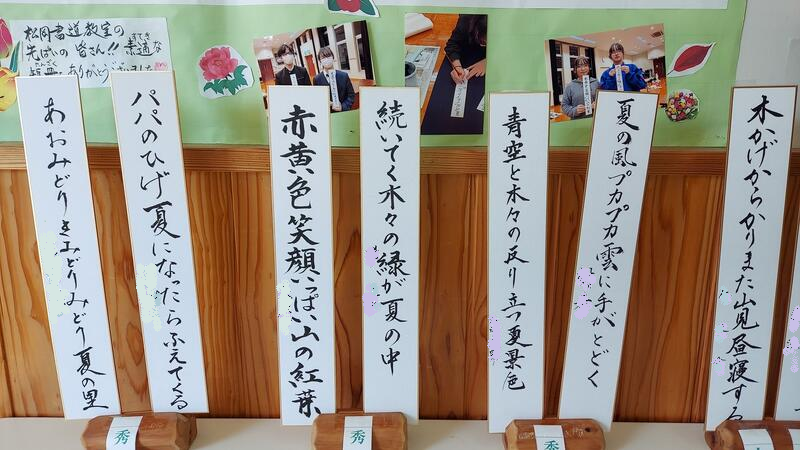 松岡書道教室の
先ぱいの皆さん!! 素適な
ありがとうございました
あおみどりきみどりみどり夏の里
パパのひげ夏になったらふえてくる
赤黄色笑顔いっぱい山の紅葉
続いてく木々の緑が夏の中
青空と木々の反り立つ夏景色
夏の風プカプカ雲に手がとどく
木かげからかりまた山見昼寝する
秀
秀
秀
秀